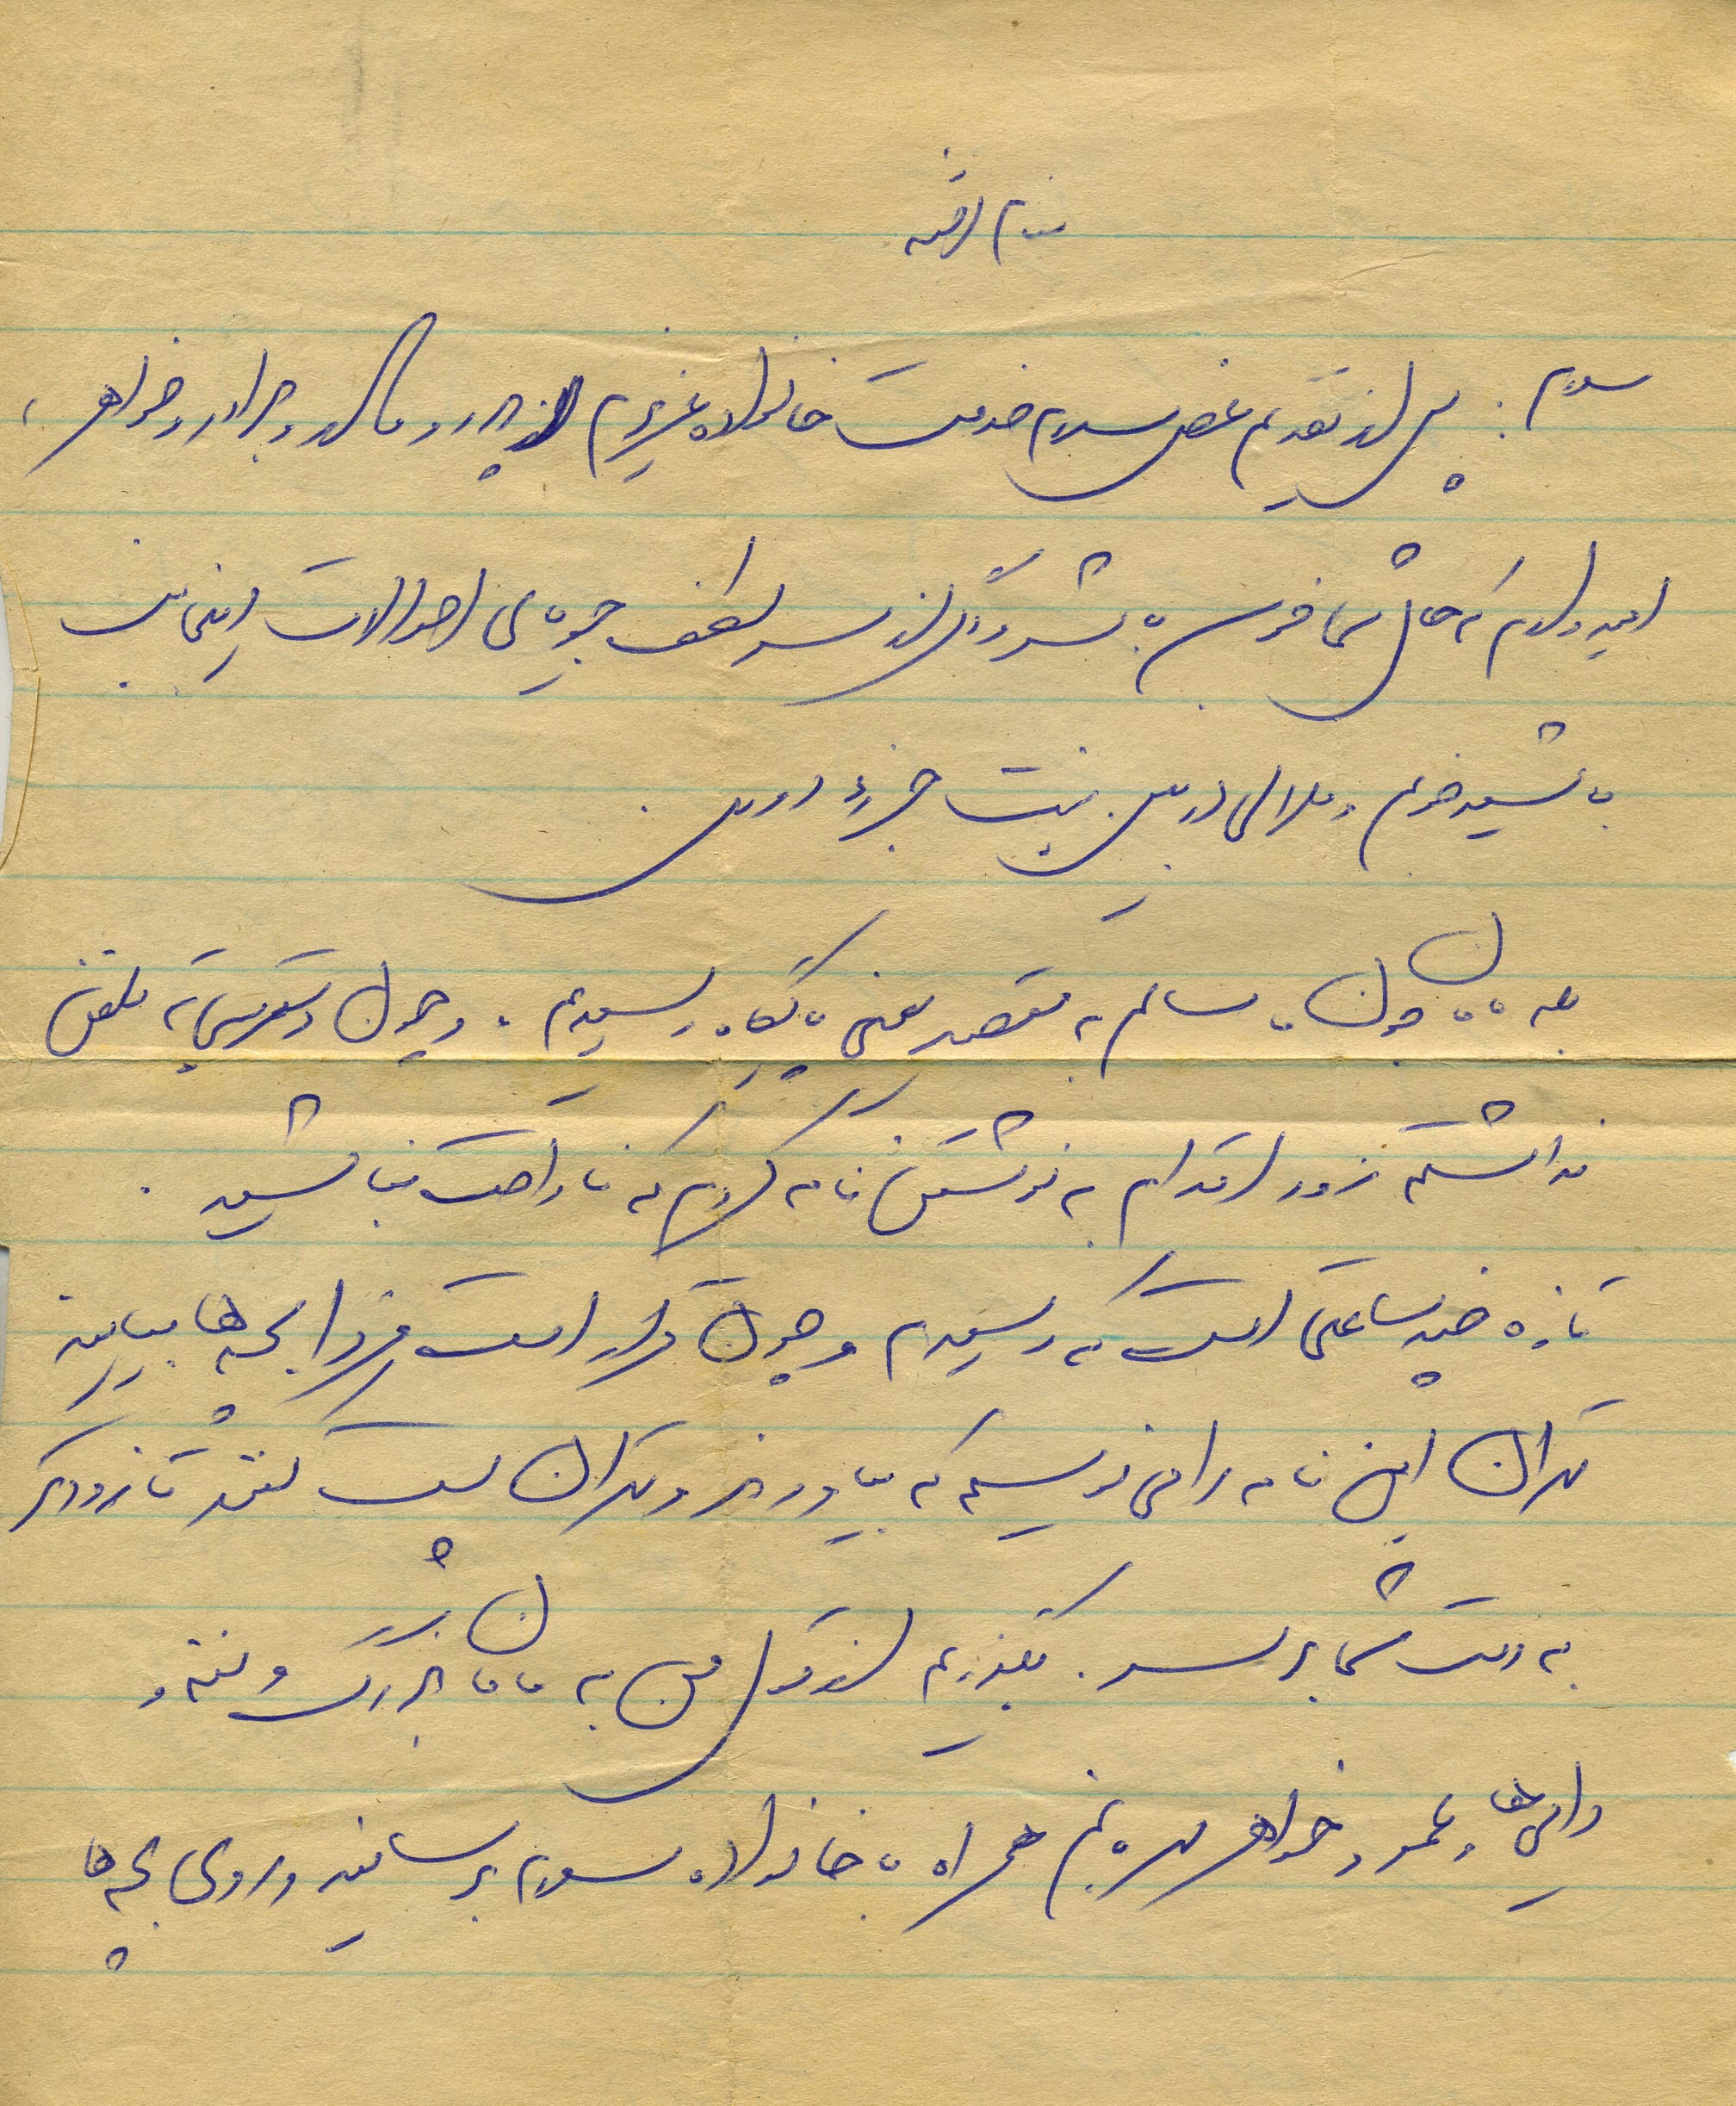 سلام: پس از تقدیم عرض سلام خدمت خانواده عزیزم از پدر و مادر و برادر و خواهر،
امیدوارم که حال شما خوب باشد و اگر از سر لطف جویای احوالات اینجانب
باشید خوبم و ملالی در بین نیست جز دوری.
مامان جون ما سالم به مقصد یعنی پایگاه رسیدیم. و چون دسترسی به تلفن
نداشتم زود اقدام به نوشتن نامه کردم که ناراحت نباشید.
تازه چند ساعتی است که رسیدم و چون قرار است فردا بچه ها بیایند
تهران این نامه را می نویسم که بیاورند و تهران پست کنند تا زودتر
به دست شما برسد. بگذریم از قول من به مامان بزرگ و ننه و
دایی ها و عمو و خواهر همراه با خانواده سلام برسانید و روی بچه ها